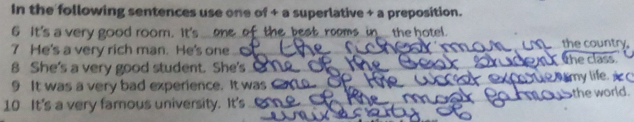 In the following sentences use one of + a superlative + a preposition.
6 It's a very good room. It's one of the best rooms in the hotel.
7 He's a very rich man. He's one of the richest man in the country.
8 She's a very good student. She's one of the best student the class.
9 It was a very bad experience. It was one of the worst my life.
10 It's a very famous university. It's one of the most famous the world.
university of